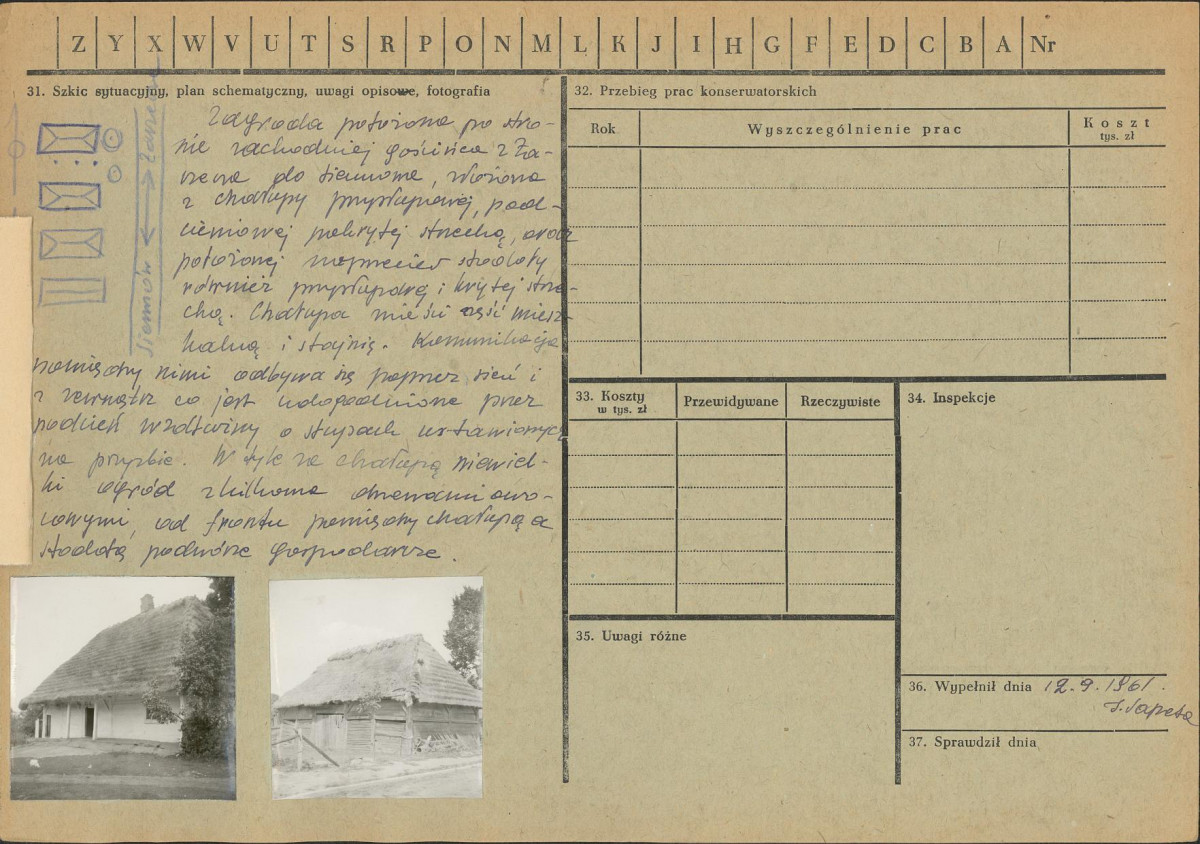 Z Y X W V U T S R P O N M L K J I H G F E D C B A Nr
31. Szkic sytuacyjny, plan schematyczny, uwagi opisowe, fotografia
Zagroda położona po stro-
nie zachodniej gościńca z Za-
rzecza do Siennowa, złożona
z chałupy przysłupowej, pod-
cieniowej pokrytej strzechą, oraz
położonej naprzeciw stodoły
również przysłupowej i krytej strze-
chą. Chałupa mieści część miesz-
kalną i stajnię. Komunikacja
pomiędzy nimi odbywa się poprzez sień i
z zewnątrz co jest udogodnione przez
podcień wzdłużny o słupach ustawionych
na przyzbie. W tyle za chałupą niewiel-
ki ogród z kilkoma drzewami owo-
cowymi, od frontu pomiędzy chałupą a
stodołą podwórze gospodarcze.
Siennów
32. Przebieg prac konserwatorskich
Rok
Wyszczególnienie prac
Koszt
tys. zł
33. Koszty
w tys. zł
Przewidywane
Rzeczywiste
34. Inspekcje
35. Uwagi różne
36. Wypełnił dnia 12.9.1961.
37. Sprawdził dnia